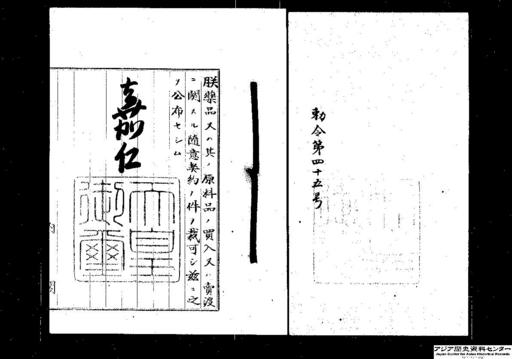 勅令第四十五号
朕藥品又ハ其ノ原料品ノ買入又ハ賣渡
ニ關スル隨意契約ノ件ヲ裁可シ茲ニ之
ヲ公布セシム
嘉仁
天皇御璽
内 閣
アジア歴史資料センター
Japan Center for Asian Historical Records